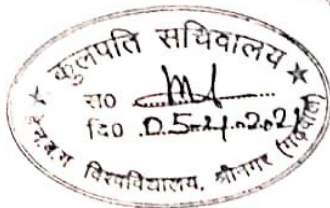 ★ कुलपति सचिवालय ★
सं0
दि0 05-4-2021
हे.न.ब.ग. विश्वविद्यालय, श्रीनगर (गढ़वाल)